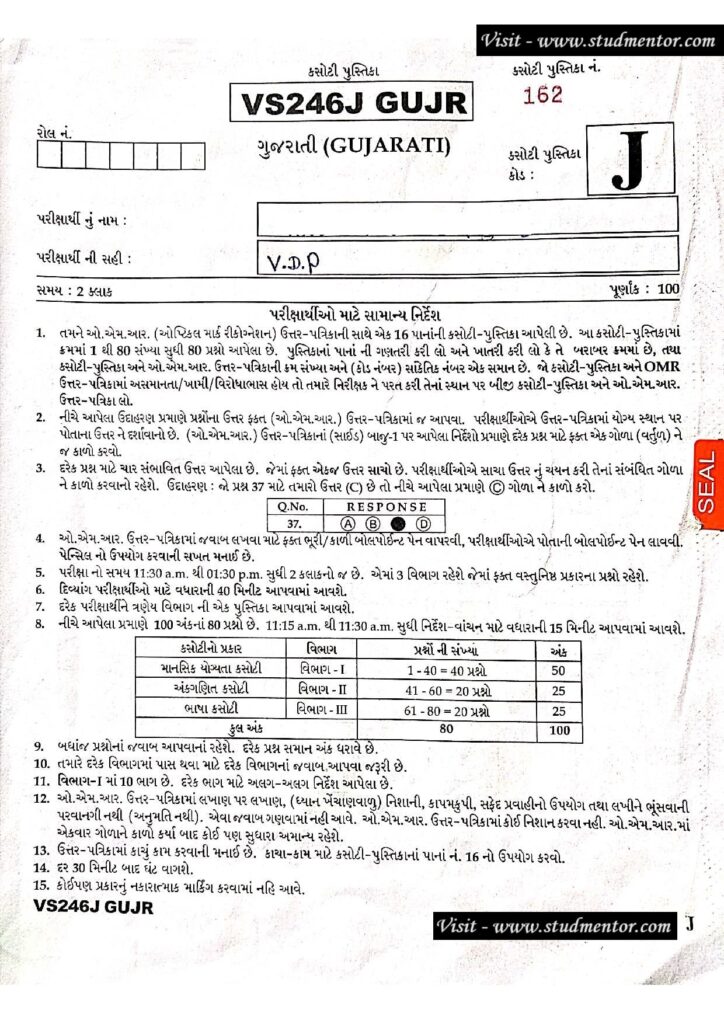 Visit - www.studmentor.com
કસોટી પુસ્તિકા
કસોટી પુસ્તિકા નં.
VS246J GUJR
162
રોલ નં.
ગુજરાતી (GUJARATI)
કસોટી પુસ્તિકા
કોડ :
J
પરીક્ષાર્થી નું નામ :
પરીક્ષાર્થી ની સહી :
V.D.P
સમય : 2 ક્લાક
પૂર્ણાંક : 100
પરીક્ષાર્થીઓ માટે સામાન્ય નિર્દેશ
1. તમને ઓ.એમ.આર. (ઓપ્ટિકલ માર્ક રીકોગ્નેશન) ઉત્તર-પત્રિકાની સાથે એક 16 પાનાંની કસોટી-પુસ્તિકા આપેલી છે. આ કસોટી-પુસ્તિકામાં
ક્રમમાં 1 થી 80 સંખ્યા સુધી 80 પ્રશ્નો આપેલા છે. પુસ્તિકાનાં પાનાં ની ગણતરી કરી લો અને ખાતરી કરી લો કે તે બરાબર ક્રમમાં છે, તથા
કસોટી-પુસ્તિકા અને ઓ.એમ.આર. ઉત્તર-પત્રિકાની ક્રમ સંખ્યા અને (કોડ નંબર) સાંકેતિક નંબર એક સમાન છે. જો કસોટી-પુસ્તિકા અને OMR
ઉત્તર-પત્રિકામાં અસમાનતા/ખામી/વિરોધાભાસ હોય તો તમારે નિરીક્ષક ને પરત કરી તેનાં સ્થાન પર બીજી કસોટી-પુસ્તિકા અને ઓ.એમ.આર.
ઉત્તર-પત્રિકા લો.
2. નીચે આપેલા ઉદાહરણ પ્રમાણે પ્રશ્નોના ઉત્તર ફક્ત (ઓ.એમ.આર.) ઉત્તર-પત્રિકામાં જ આપવા. પરીક્ષાર્થીઓએ ઉત્તર-પત્રિકામાં યોગ્ય સ્થાન પર
પોતાના ઉત્તર ને દર્શાવાનો છે. (ઓ.એમ.આર.) ઉત્તર-પત્રિકાનાં (સાઈડ) બાજુ-1 પર આપેલા નિર્દેશો પ્રમાણે દરેક પ્રશ્ન માટે ફક્ત એક ગોળા (વર્તુળ) ને
જ કાળો કરવો.
3. દરેક પ્રશ્ન માટે ચાર સંભાવિત ઉત્તર આપેલા છે. જેમાં ફક્ત એકજ ઉત્તર સાચો છે. પરીક્ષાર્થીઓએ સાચા ઉત્તર નું ચયન કરી તેનાં સંબંધિત ગોળા
ને કાળો કરવાનો રહેશે. ઉદાહરણ : જો પ્રશ્ન 37 માટે તમારો ઉત્તર (C) છે તો નીચે આપેલા પ્રમાણે Ⓒ ગોળા ને કાળો કરો.
Q.No. RESPONSE
37. Ⓐ Ⓑ ● Ⓓ
4. ઓ.એમ.આર. ઉત્તર-પત્રિકામાં જવાબ લખવા માટે ફક્ત ભૂરી/કાળી બોલપોઈન્ટ પેન વાપરવી, પરીક્ષાર્થીઓએ પોતાની બોલપોઈન્ટ પેન લાવવી.
પેન્સિલ નો ઉપયોગ કરવાની સખત મનાઈ છે.
5. પરીક્ષા નો સમય 11:30 a.m. થી 01:30 p.m. સુધી 2 કલાકનો જ છે. એમાં 3 વિભાગ રહેશે જેમાં ફક્ત વસ્તુનિષ્ઠ પ્રકારના પ્રશ્નો રહેશે.
6. દિવ્યાંગ પરીક્ષાર્થીઓ માટે વધારાની 40 મિનીટ આપવામાં આવશે.
7. દરેક પરીક્ષાર્થીને ત્રણેય વિભાગ ની એક પુસ્તિકા આપવામાં આવશે.
8. નીચે આપેલા પ્રમાણે 100 અંકનાં 80 પ્રશ્નો છે. 11:15 a.m. થી 11:30 a.m. સુધી નિર્દેશ-વાંચન માટે વધારાની 15 મિનીટ આપવામાં આવશે.
કસોટીનો પ્રકાર વિભાગ પ્રશ્નોં ની સંખ્યા અંક
માનસિક યોગ્યતા કસોટી વિભાગ - I 1 - 40 = 40 પ્રશ્નો 50
અંકગણિત કસોટી વિભાગ - II 41 - 60 = 20 પ્રશ્નો 25
ભાષા કસોટી વિભાગ - III 61 - 80 = 20 પ્રશ્નો 25
કુલ અંક 80 100
9. બધાંજ પ્રશ્નોનાં જવાબ આપવાનાં રહેશે. દરેક પ્રશ્ન સમાન અંક ધરાવે છે.
10. તમારે દરેક વિભાગમાં પાસ થવા માટે દરેક વિભાગનાં જવાબ આપવા જરૂરી છે.
11. વિભાગ-I માં 10 ભાગ છે. દરેક ભાગ માટે અલગ-અલગ નિર્દેશ આપેલા છે.
12. ઓ.એમ.આર. ઉત્તર-પત્રિકામાં લખાણ પર લખાણ, (ધ્યાન ખેંચાણવાળુ) નિશાની, કાપમકુપી, સફેદ પ્રવાહીનો ઉપયોગ તથા લખીને ભૂંસવાની
પરવાનગી નથી (અનુમતિ નથી). એવા જવાબ ગણવામાં નહી આવે. ઓ.એમ.આર. ઉત્તર-પત્રિકામાં કોઈ નિશાન કરવા નહી. ઓ.એમ.આર.માં
એકવાર ગોળાને કાળો કર્યા બાદ કોઈ પણ સુધારા અમાન્ય રહેશે.
13. ઉત્તર-પત્રિકામાં કાચું કામ કરવાની મનાઈ છે. કાચા-કામ માટે કસોટી-પુસ્તિકાનાં પાનાં નં. 16 નો ઉપયોગ કરવો.
14. દર 30 મિનીટ બાદ ઘંટ વાગશે.
15. કોઈપણ પ્રકારનું નકારાત્મક માર્કિંગ કરવામાં નહિ આવે.
VS246J GUJR
Visit - www.studmentor.com
J
SEAL